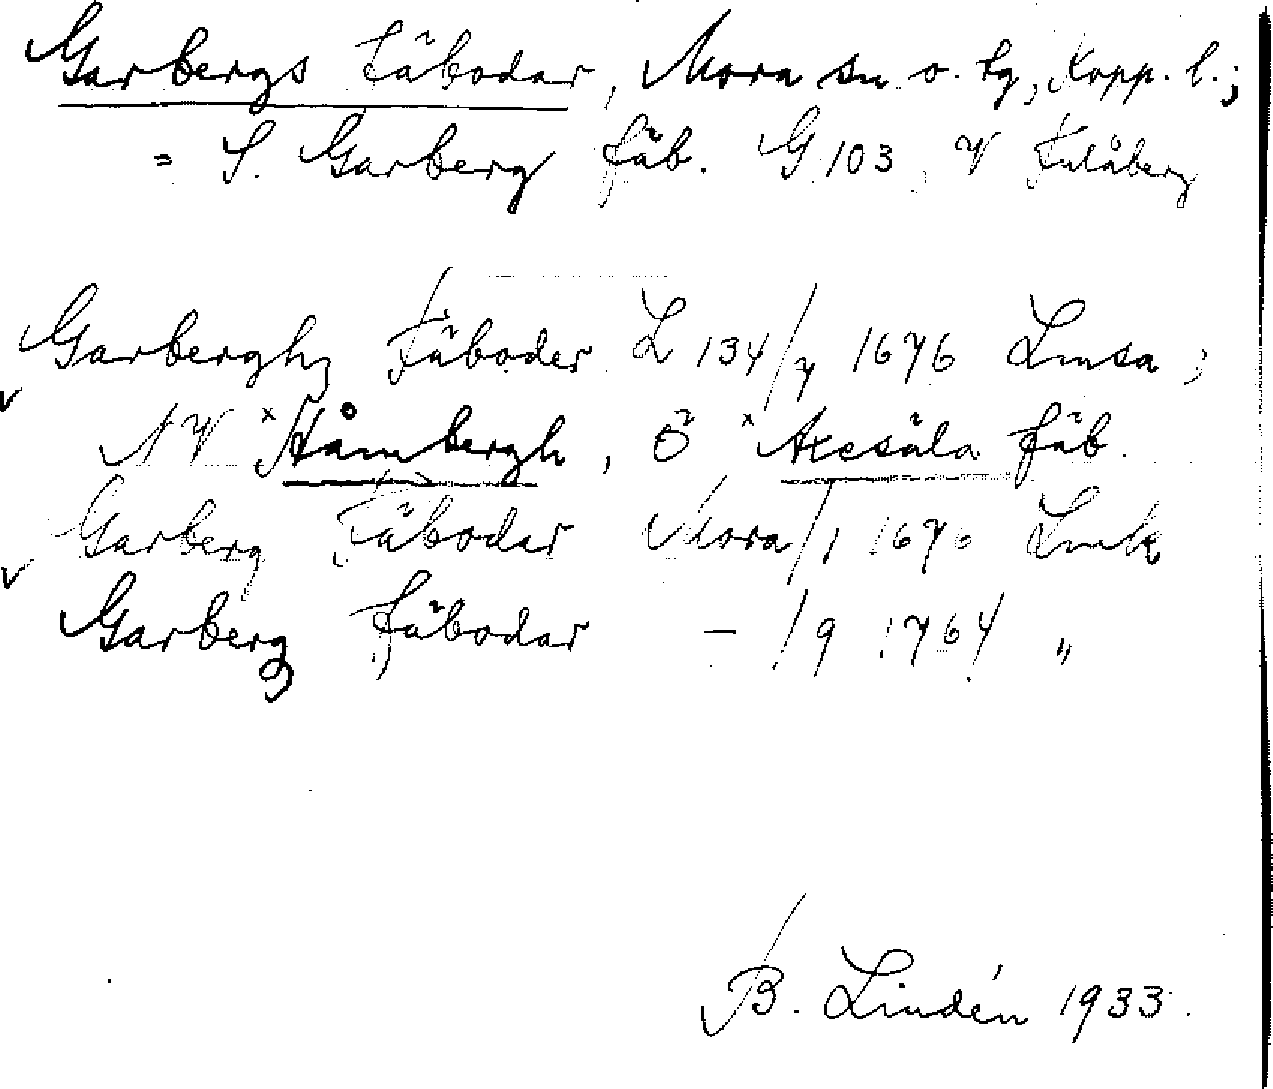 Garbergs Fäbodar, Mora sn o. tg, Kopp. l.;
= S. Garberg fäb. G 103, V Fulåberg
Garberghz Fäboder L 134/7 1676 Lmsa;
NV ˣHåmbergh, Ö ˣAxesäla fäb.
Garberg Fäbodar Mora/1 1670 Lmk
Garberg fäbodar – /9 1764 "
B. Lindén 1933.